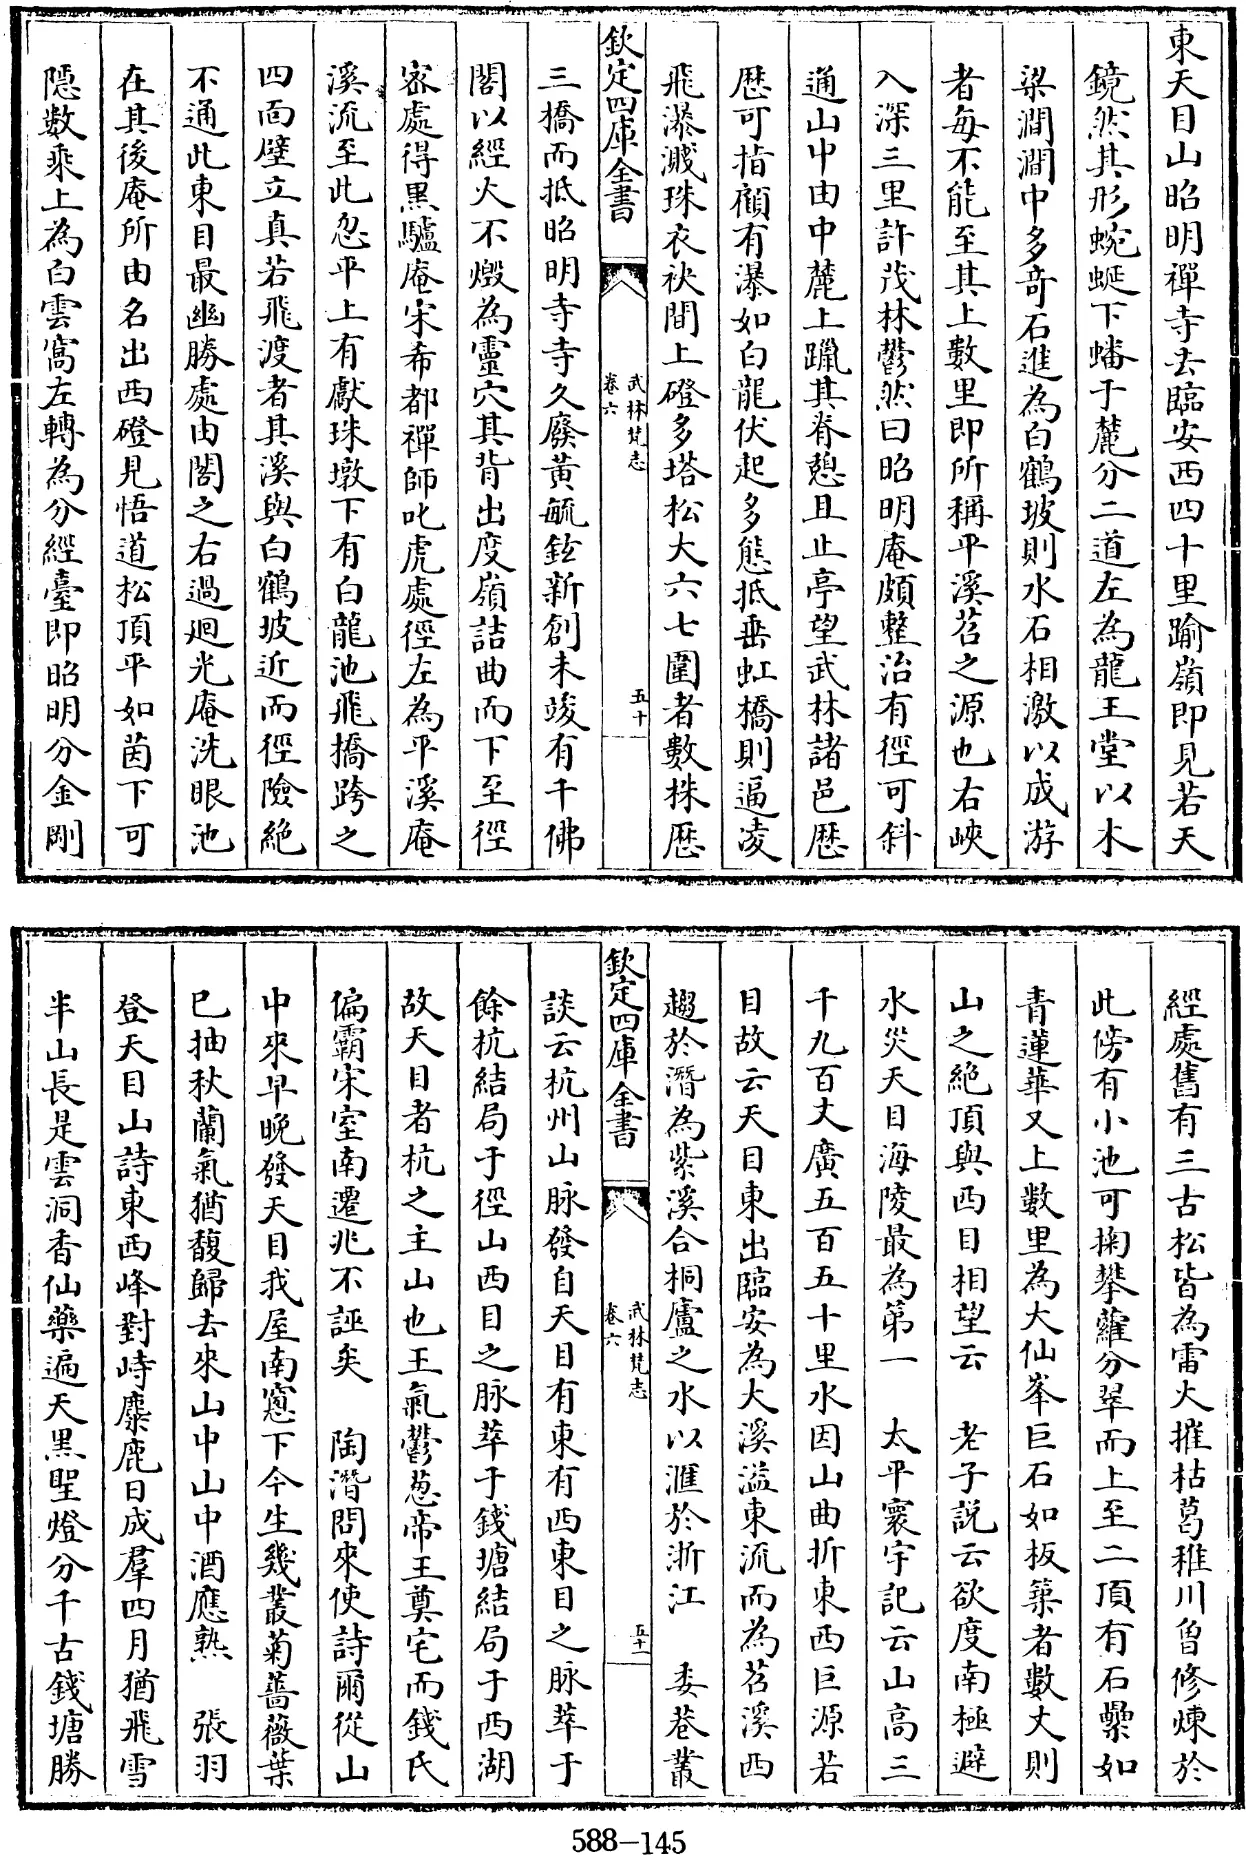 東天目山昭明禪寺去臨安西四十里踰嶺即見若天
鏡然其形蜿蜒下蟠于麓分二道左為龍王堂以木
梁澗澗中多奇石進為白鶴坡則水石相激以成游
者每不能至其上數里即所稱平溪苕之源也右峽
入深三里許茂林鬱然曰昭明庵頗整治有徑可斜
通山中由中麓上躐其脊憩且止亭望武林諸邑歴
歴可指顧有瀑如白龍伏起多態抵垂虹橋則逼凌
飛瀑濺珠衣袂間上磴多塔松大六七圍者數株歴
欽定四庫全書
武林梵志
卷六
五十
三橋而抵昭明寺寺久廢黃毓鉉新創未竣有千佛
閣以經火不燬為靈穴其背出度嶺詰曲而下至徑
宻處得黑驢庵宋希都禪師叱虎處徑左為平溪庵
溪流至此忽平上有獻珠墩下有白龍池飛橋跨之
四面壁立真若飛渡者其溪與白鶴坡近而徑險絶
不通此東目最幽勝處由閣之右過廻光庵洗眼池
在其後庵所由名出西磴見悟道松頂平如茵下可
隱數乘上為白雲窩左轉為分經臺即昭明分金剛
經處舊有三古松皆為雷火摧枯葛稚川曾修煉於
此傍有小池可掬攀蘿分翠而上至二頂有石纍如
青蓮華又上數里為大仙峯巨石如板築者數丈則
山之絶頂與西目相望云　老子說云欲度南極避
水災天目海陵最為第一　太平寰宇記云山高三
千九百丈廣五百五十里水因山曲折東西巨源若
目故云天目東出臨安為大溪溢東流而為苕溪西
趨於潛為紫溪合桐廬之水以滙於浙江　委巷叢
欽定四庫全書
武林梵志
卷六
五十一
談云杭州山脉發自天目有東有西東目之脉萃于
餘杭結局于徑山西目之脉萃于錢塘結局于西湖
故天目者杭之主山也王氣鬱葱帝王奠宅而錢氏
偏霸宋室南遷兆不誣矣　陶潛問來使詩爾從山
中來早晚發天目我屋南窻下今生幾叢菊薔薇葉
已抽秋蘭氣猶馥歸去來山中山中酒應熟　張羽
登天目山詩東西峰對峙麋鹿日成羣四月猶飛雪
半山長是雲洞香仙藥遍天黑聖燈分千古錢塘勝
588-145